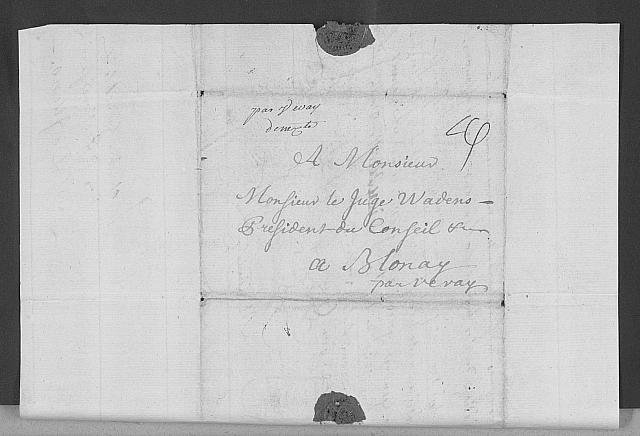 par Vevay
A Monsieur
Monsieur le Juge Wadens
President du Conseil &
a Blonay
par Vevay